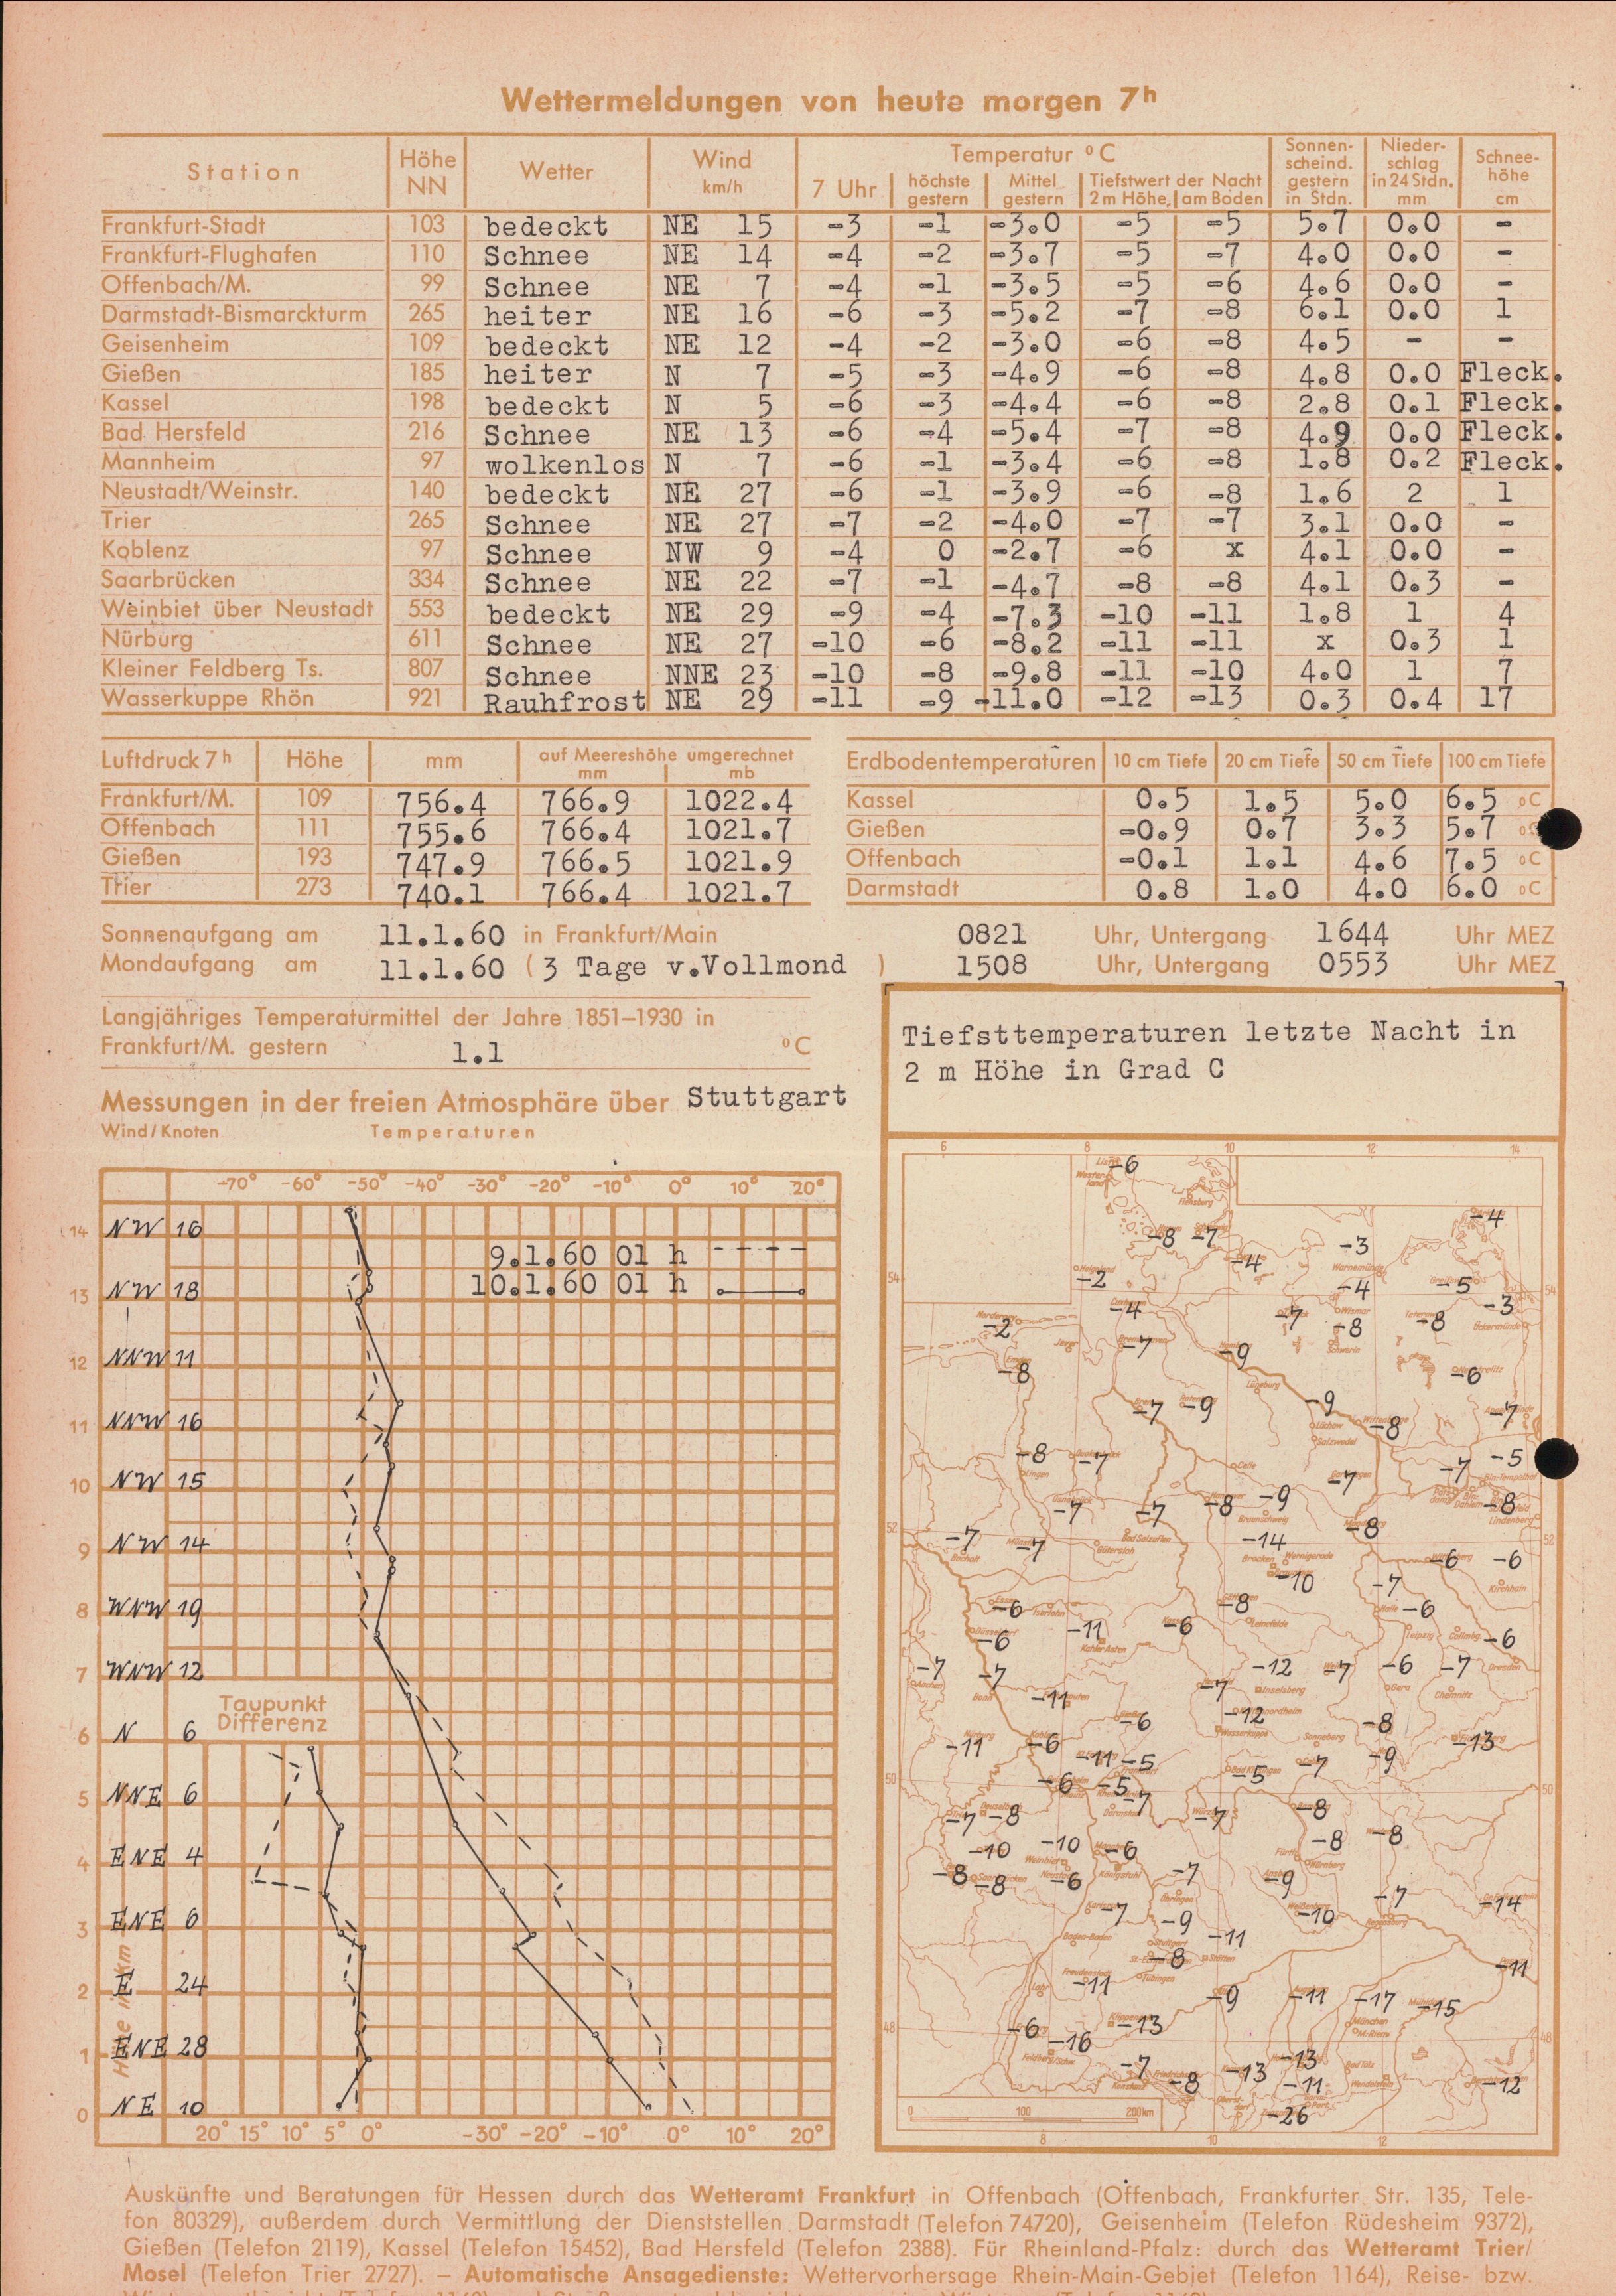 Wettermeldungen von heute morgen 7h
Station Höhe NN Wetter Wind km/h Temperatur °C Sonnen-scheind. gestern in Stdn. Nieder-schlag in 24 Stdn. mm Schnee-höhe cm
7 Uhr höchste gestern Mittel gestern Tiefstwert der Nacht 2 m Höhe, am Boden
Frankfurt-Stadt 103 bedeckt NE 15 -3 -1 -3.0 -5 -5 5.7 0.0 -
Frankfurt-Flughafen 110 Schnee NE 14 -4 -2 -3.7 -5 -7 4.0 0.0 -
Offenbach/M. 99 Schnee NE 7 -4 -1 -3.5 -5 -6 4.6 0.0 -
Darmstadt-Bismarckturm 265 heiter NE 16 -6 -3 -5.2 -7 -8 6.1 0.0 1
Geisenheim 109 bedeckt NE 12 -4 -2 -3.0 -6 -8 4.5 - -
Gießen 185 heiter N 7 -5 -3 -4.9 -6 -8 4.8 0.0 Fleck.
Kassel 198 bedeckt N 5 -6 -3 -4.4 -6 -8 2.8 0.1 Fleck.
Bad Hersfeld 216 Schnee NE 13 -6 -4 -5.4 -7 -8 4.9 0.0 Fleck.
Mannheim 97 wolkenlos N 7 -6 -1 -3.4 -6 -8 1.8 0.2 Fleck.
Neustadt/Weinstr. 140 bedeckt NE 27 -6 -1 -3.9 -6 -8 1.6 2 1
Trier 265 Schnee NE 27 -7 -2 -4.0 -7 -7 3.1 0.0 -
Koblenz 97 Schnee NW 9 -4 0 -2.7 -6 x 4.1 0.0 -
Saarbrücken 334 Schnee NE 22 -7 -1 -4.7 -8 -8 4.1 0.3 -
Weinbiet über Neustadt 553 bedeckt NE 29 -9 -4 -7.3 -10 -11 1.8 1 4
Nürburg 611 Schnee NE 27 -10 -6 -8.2 -11 -11 x 0.3 1
Kleiner Feldberg Ts. 807 Schnee NNE 23 -10 -8 -9.8 -11 -10 4.0 1 7
Wasserkuppe Rhön 921 Rauhfrost NE 29 -11 -9 -11.0 -12 -13 0.3 0.4 17
Luftdruck 7h Höhe mm auf Meereshöhe umgerechnet mm mb
Frankfurt/M. 109 756.4 766.9 1022.4
Offenbach 111 755.6 766.4 1021.7
Gießen 193 747.9 766.5 1021.9
Trier 273 740.1 766.4 1021.7
Erdbodentemperaturen 10 cm Tiefe 20 cm Tiefe 50 cm Tiefe 100 cm Tiefe
Kassel 0.5 1.5 5.0 6.5 °C
Gießen -0.9 0.7 3.3 5.7
Offenbach -0.1 1.1 4.6 7.5 °C
Darmstadt 0.8 1.0 4.0 6.0 °C
Sonnenaufgang am 11.1.60 in Frankfurt/Main 0821 Uhr, Untergang 1644 Uhr MEZ
Mondaufgang am 11.1.60 (3 Tage v.Vollmond ) 1508 Uhr, Untergang 0553 Uhr MEZ
Langjähriges Temperaturmittel der Jahre 1851–1930 in
Frankfurt/M. gestern 1.1 °C
Messungen in der freien Atmosphäre über Stuttgart
Wind/Knoten Temperaturen
-70° -60° -50° -40° -30° -20° -10° 0° 10° 20°
14 NW 16
9.1.60 01 h
10.1.60 01 h
13 NW 18
12 NNW 11
11 NNW 16
10 NW 15
9 NW 14
8 WNW 19
7 WNW 12
Taupunkt
Differenz
6 N 6
5 NNE 6
4 ENE 4
3 ENE 6
2 E 24
1 ENE 28
0 NE 10
Höhe in km
20° 15° 10° 5° 0° -30° -20° -10° 0° 10° 20°
Tiefsttemperaturen letzte Nacht in
2 m Höhe in Grad C
6 8 10 12 14
-6
-4
-8 -7 -3
-4
-2 -4 -5
54 54
-4 -7 -3
-2 -8 -8
-7 -9
-8 -6
-7 -9 -9 -8 -7
-8 -7 -7 -7 -5
-7 -7 -8 -9 -8
52 -7 -7 -14 -8 52
-6 -6
-10 -7
-6 -8 -6
-6 -11 -6 -6
-7 -7 -12 -7 -6 -7
-11 -7
-6 -12 -8
-11 -6 -13
-11 -5 -7 -9
50 -6 -5 -5 50
-7 -8 -7 -7 -8
-10 -10 -6 -8 -8
-8 -8 -6 -7 -9
-7 -9 -10 -7 -14
-11
-8 -11
-11 -9 -11 -17 -15
48 -6 -16 -13 48
-7 -8 -13 -13 -11 -12
-26
0 100 200 km
8 10 12
Auskünfte und Beratungen für Hessen durch das Wetteramt Frankfurt in Offenbach (Offenbach, Frankfurter Str. 135, Tele-
fon 80329), außerdem durch Vermittlung der Dienststellen Darmstadt (Telefon 74720), Geisenheim (Telefon Rüdesheim 9372),
Gießen (Telefon 2119), Kassel (Telefon 15452), Bad Hersfeld (Telefon 2388). Für Rheinland-Pfalz: durch das Wetteramt Trier/
Mosel (Telefon Trier 2727). – Automatische Ansagedienste: Wettervorhersage Rhein-Main-Gebiet (Telefon 1164), Reise- bzw.